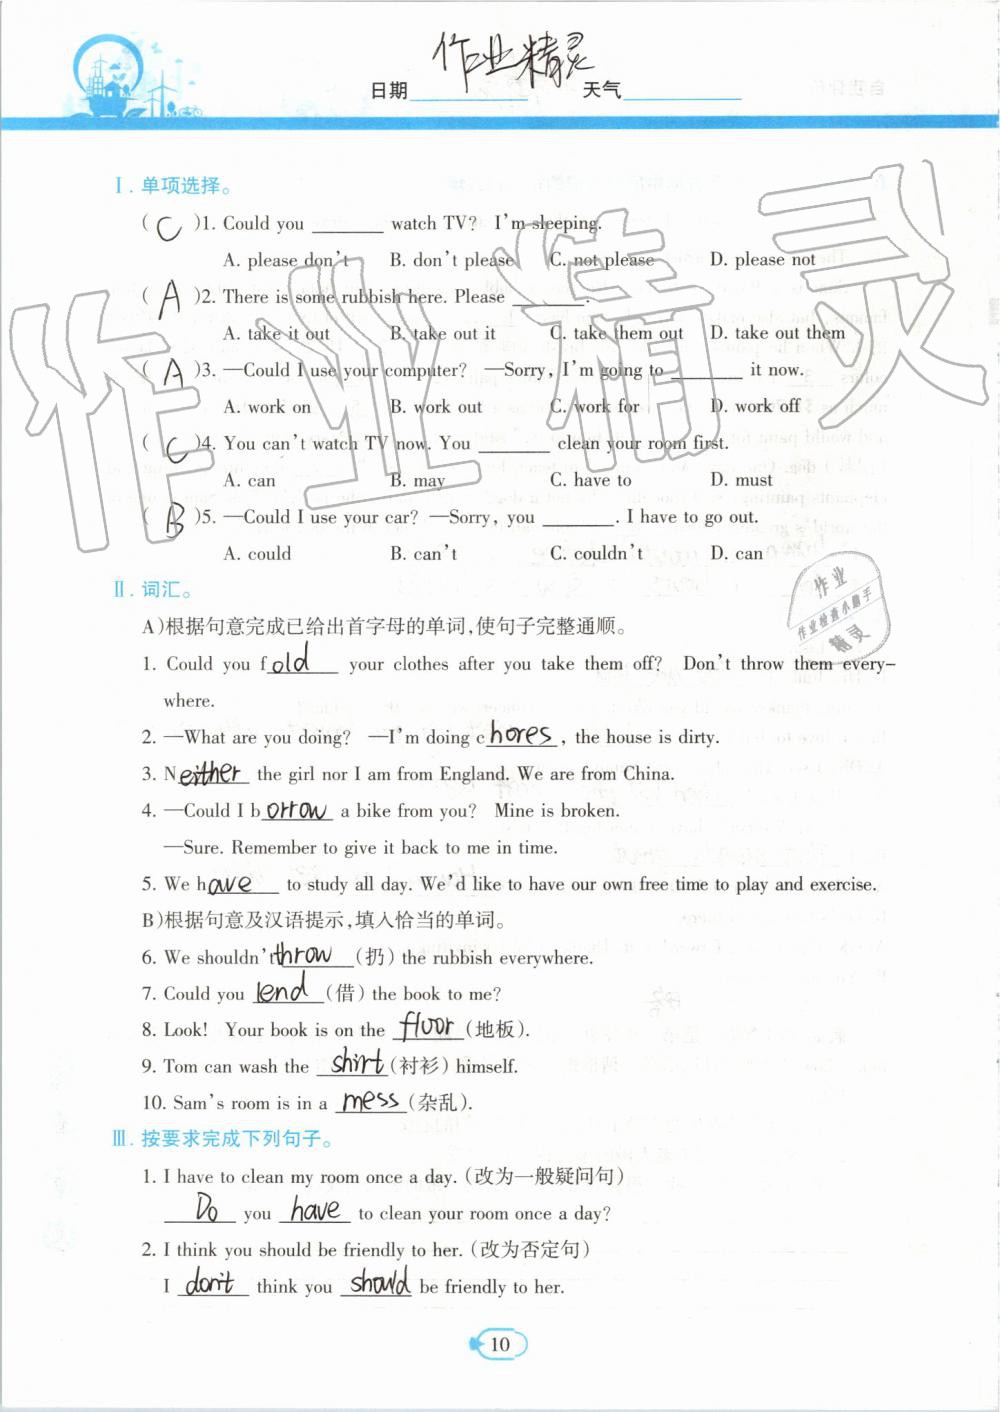 作业精灵
日期 天气
Ⅰ. 单项选择。
( C )1. Could you ______ watch TV? I'm sleeping.
A. please don't B. don't please C. not please D. please not
( A )2. There is some rubbish here. Please ______.
A. take it out B. take out it C. take them out D. take out them
( A )3. —Could I use your computer? —Sorry, I'm going to ______ it now.
A. work on B. work out C. work for D. work off
( C )4. You can't watch TV now. You ______ clean your room first.
A. can B. may C. have to D. must
( B )5. —Could I use your car? —Sorry, you ______. I have to go out.
A. could B. can't C. couldn't D. can
Ⅱ. 词汇。
A)根据句意完成已给出首字母的单词,使句子完整通顺。
1. Could you fold your clothes after you take them off? Don't throw them every-
where.
2. —What are you doing? —I'm doing chores, the house is dirty.
3. Neither the girl nor I am from England. We are from China.
4. —Could I borrow a bike from you? Mine is broken.
—Sure. Remember to give it back to me in time.
5. We have to study all day. We'd like to have our own free time to play and exercise.
B)根据句意及汉语提示,填入恰当的单词。
6. We shouldn't throw (扔) the rubbish everywhere.
7. Could you lend (借) the book to me?
8. Look! Your book is on the floor (地板).
9. Tom can wash the shirt (衬衫) himself.
10. Sam's room is in a mess (杂乱).
Ⅲ. 按要求完成下列句子。
1. I have to clean my room once a day. (改为一般疑问句)
Do you have to clean your room once a day?
2. I think you should be friendly to her. (改为否定句)
I don't think you should be friendly to her.
10
作业精灵
作业
作业检查小助手
精灵